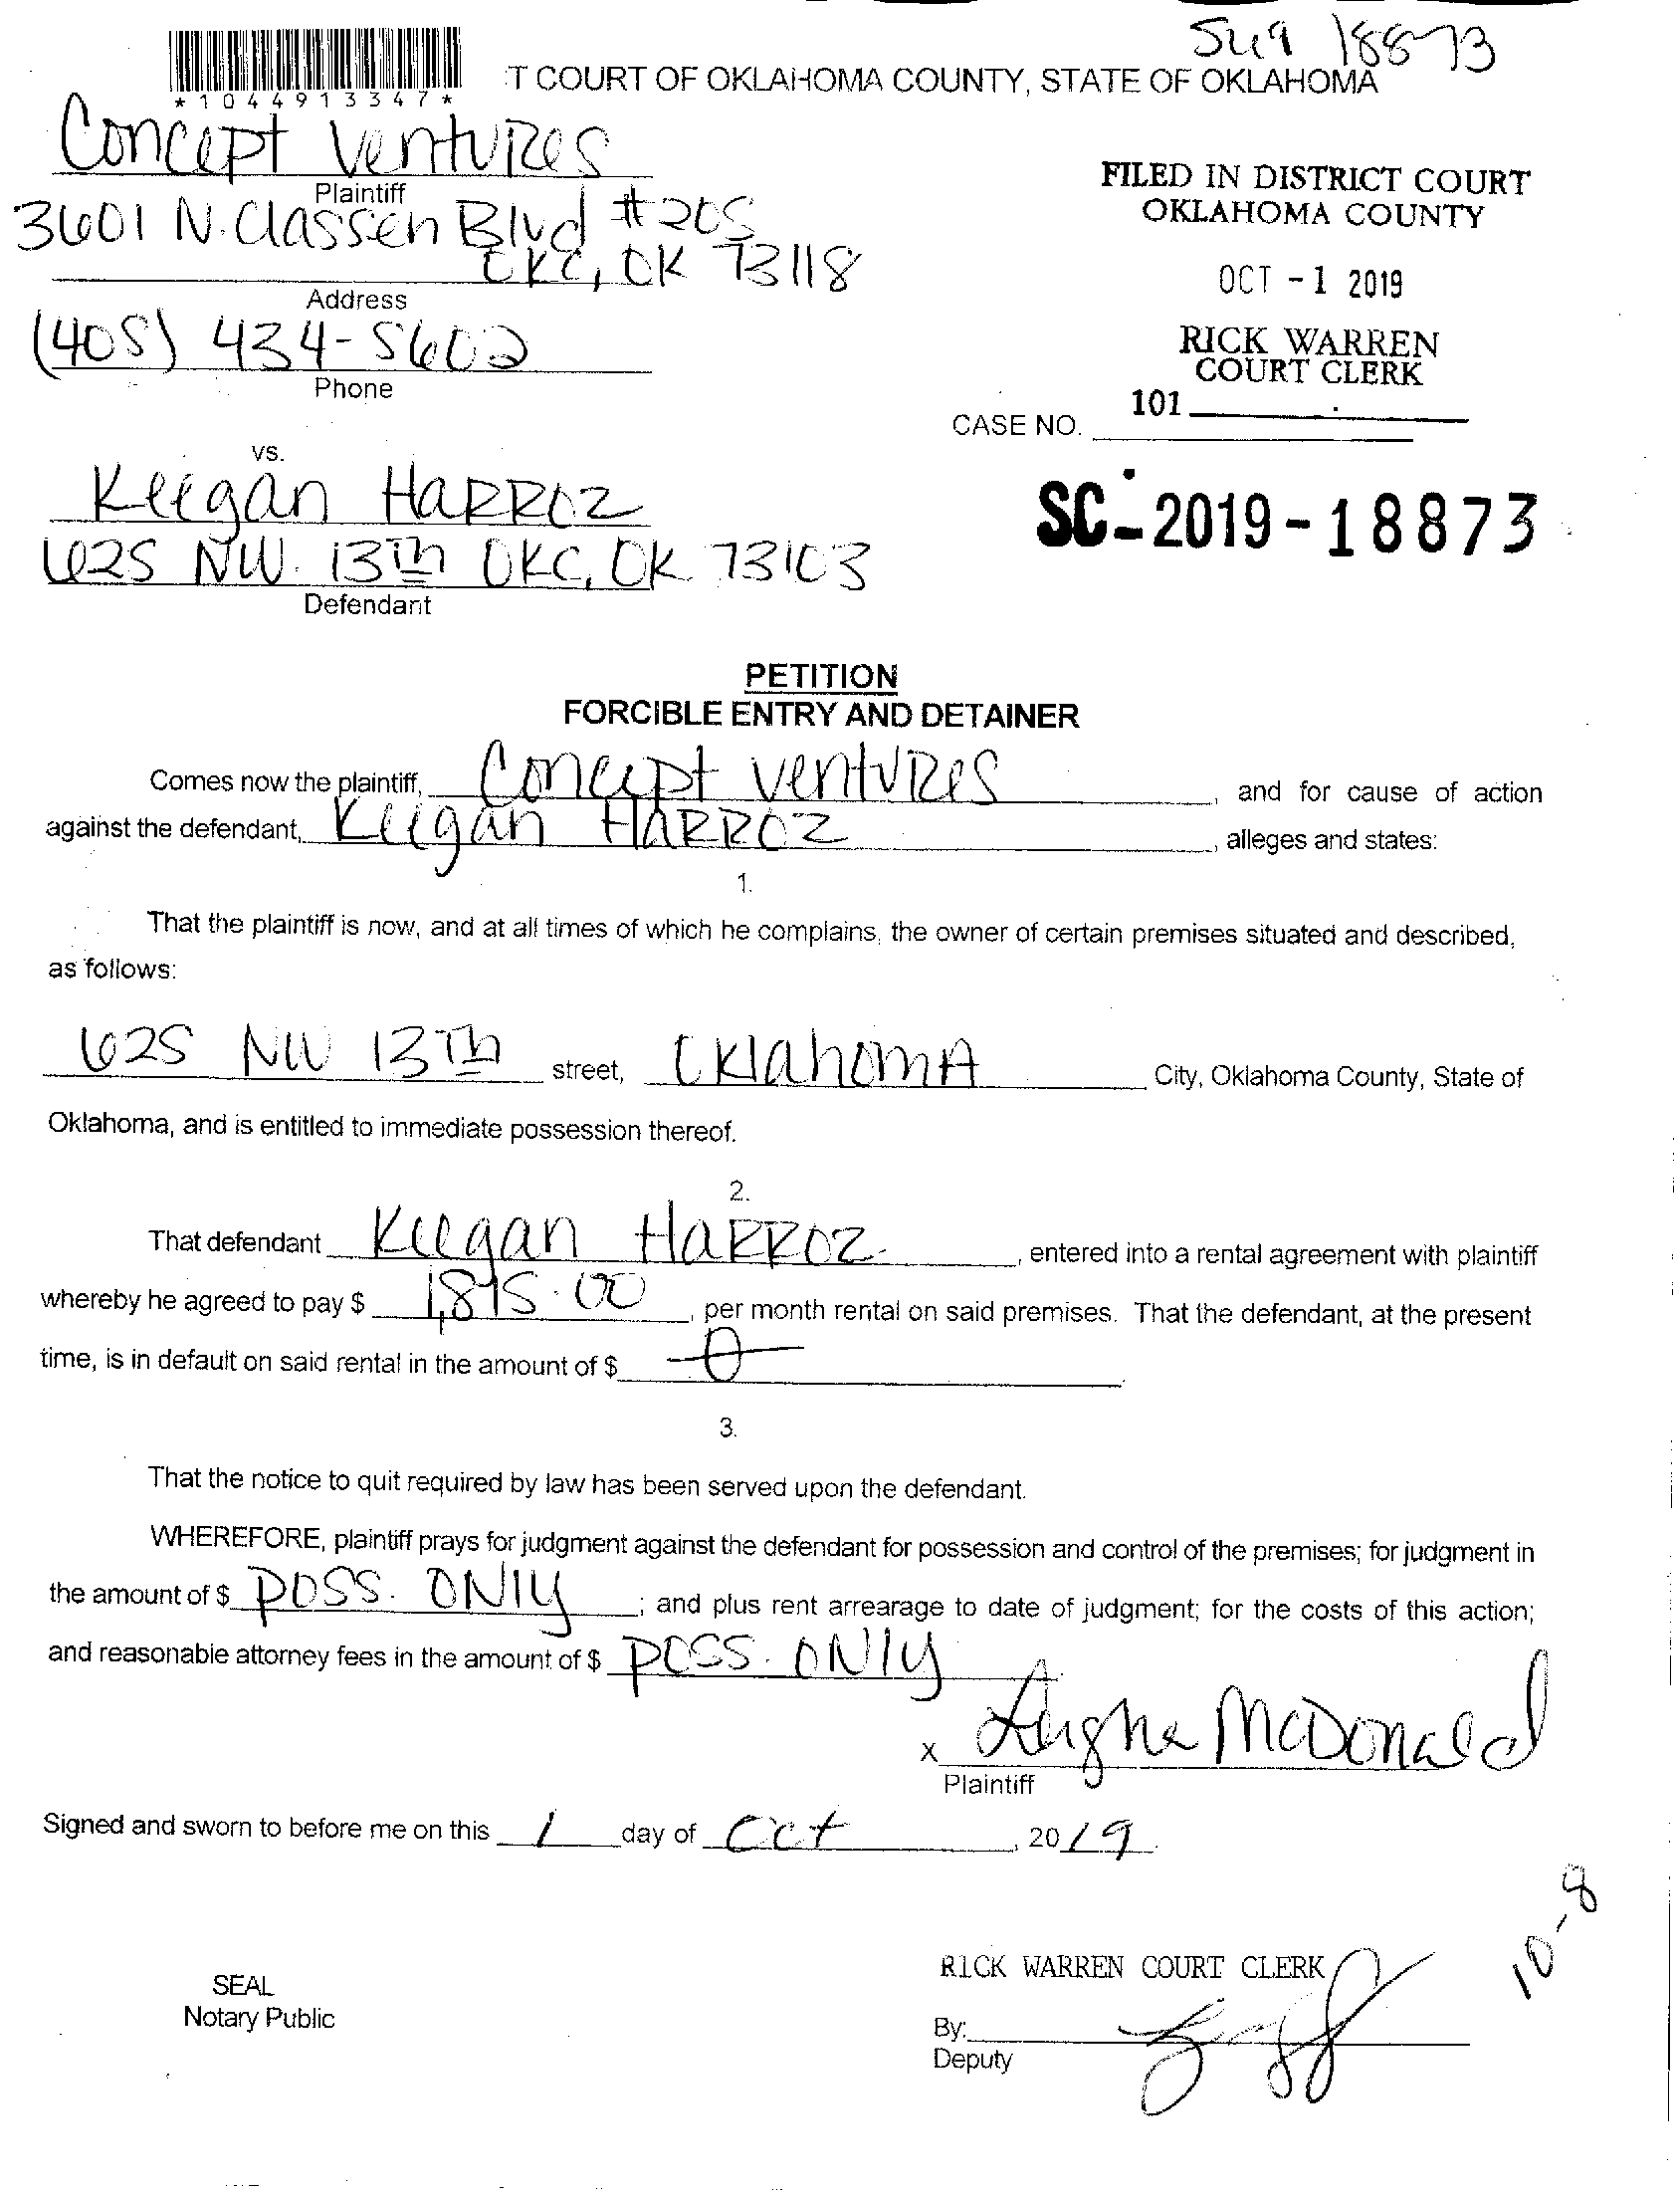 Sug 18873
*1044913347*
T COURT OF OKLAHOMA COUNTY, STATE OF OKLAHOMA
Concept Ventures
Plaintiff
3601 N. Classen Blvd #205
OKC, OK 73118
Address
(405) 434-5602
Phone
FILED IN DISTRICT COURT
OKLAHOMA COUNTY
OCT -1 2019
RICK WARREN
COURT CLERK
101
CASE NO.
SC-2019-18873
vs.
Keegan Harroz
625 NW. 13th OKC, OK 73103
Defendant
PETITION
FORCIBLE ENTRY AND DETAINER
Comes now the plaintiff, Concept Ventures, and for cause of action
against the defendant, Keegan Harroz, alleges and states:
1.
That the plaintiff is now, and at all times of which he complains, the owner of certain premises situated and described,
as follows:
625 NW 13th street, Oklahoma City, Oklahoma County, State of
Oklahoma, and is entitled to immediate possession thereof.
2.
That defendant Keegan Harroz, entered into a rental agreement with plaintiff
whereby he agreed to pay $ 1,895.00, per month rental on said premises. That the defendant, at the present
time, is in default on said rental in the amount of $ 0.
3.
That the notice to quit required by law has been served upon the defendant.
WHEREFORE, plaintiff prays for judgment against the defendant for possession and control of the premises; for judgment in
the amount of $ POSS. ONLY; and plus rent arrearage to date of judgment; for the costs of this action;
and reasonable attorney fees in the amount of $ POSS. ONLY
x McDonald
Plaintiff
Signed and sworn to before me on this 1 day of Oct, 2019.
10-8
SEAL
Notary Public
RICK WARREN COURT CLERK
By:
Deputy